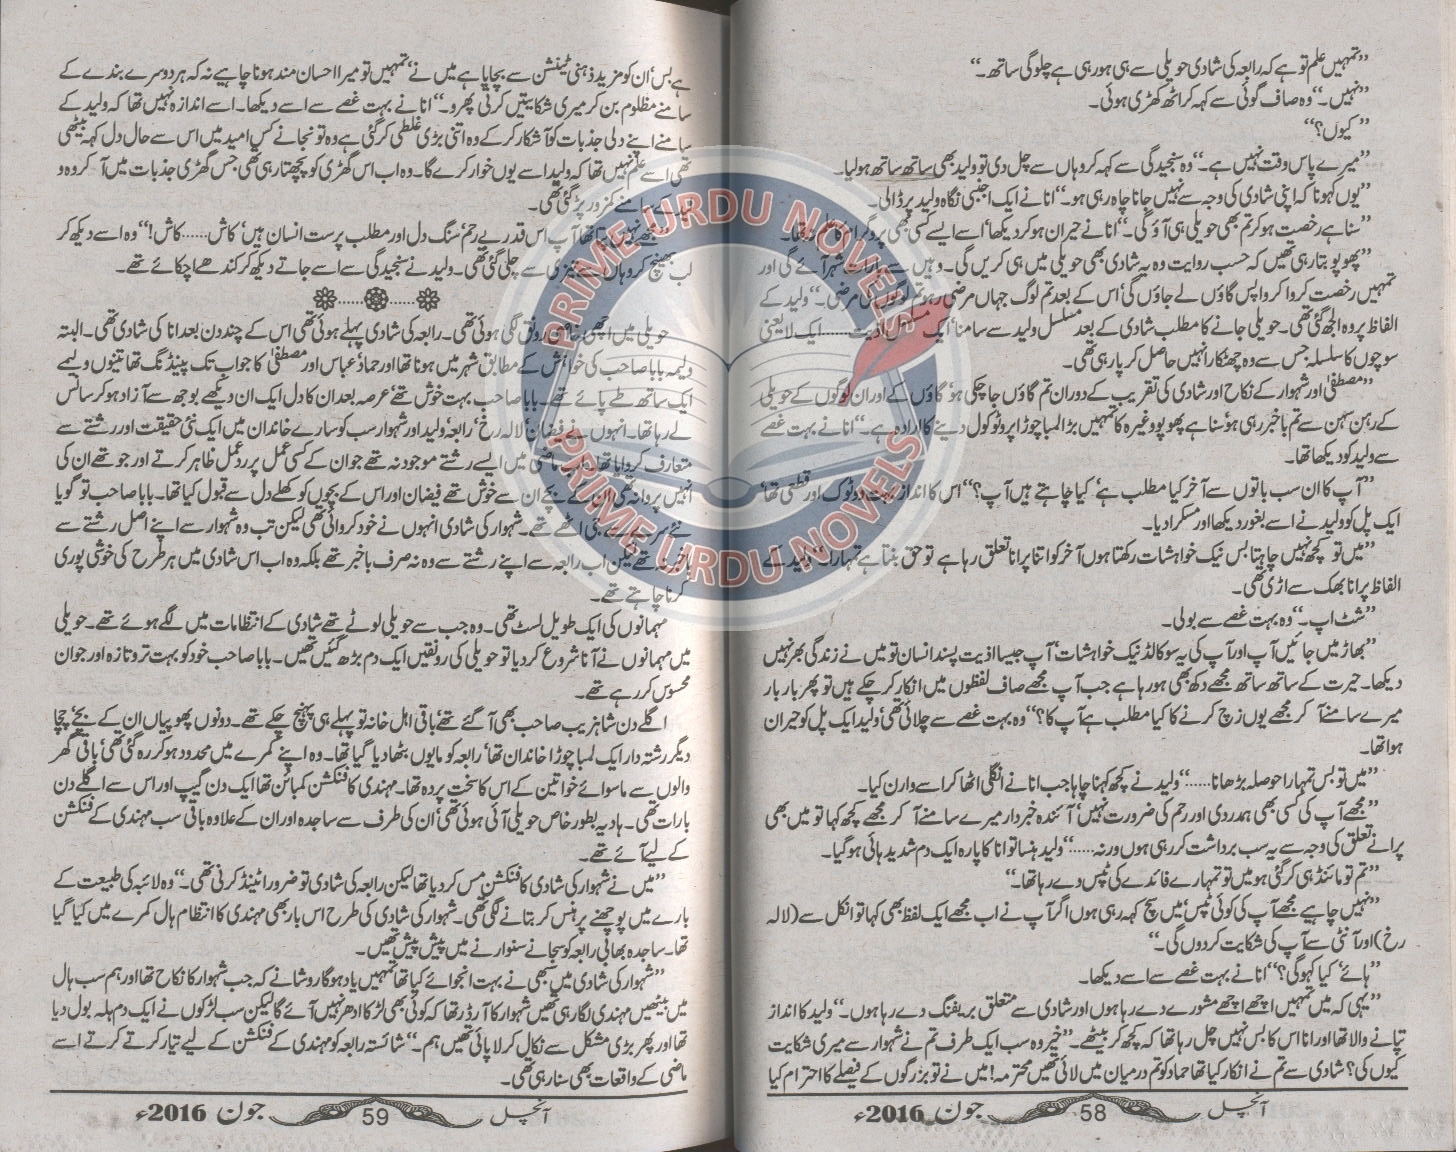 ”تمہیں علم تو ہے کہ رابعہ کی شادی حویلی سے ہی ہو رہی ہے چلو گی ساتھ۔“
”نہیں۔“ وہ صاف گوئی سے کہہ کر اٹھ کھڑی ہوئی۔
”کیوں؟“
”میرے پاس وقت نہیں ہے۔“ وہ سنجیدگی سے کہہ کر وہاں سے چل دی تو ولید بھی ساتھ ساتھ ہولیا۔
”یوں کہو نا کہ اپنی شادی کی وجہ سے نہیں جانا چاہ رہی ہو۔“ انا نے ایک اجنبی نگاہ ولید پر ڈالی۔
”سنا ہے رخصت ہو کر تم بھی حویلی ہی آؤ گی۔“ انا نے حیران ہو کر دیکھا، اسے ایسے کسی بھی پروگرام کا
”پھوپو بتا رہی تھیں کہ حسب روایت وہ یہ شادی بھی حویلی میں ہی کریں گی۔ وہیں سے بارات شہر آئے گی اور
تمہیں رخصت کروا کر واپس گاؤں لے جاؤں گی اس کے بعد تم لوگ جہاں مرضی رہو تم لوگوں کی مرضی۔“ ولید کے
الفاظ پر وہ الجھ گئی تھی۔ حویلی جانے کا مطلب شادی کے بعد مسلسل ولید سے سامنا، ایک مسلسل اذیت...... ایک لایعنی
سوچوں کا سلسلہ جس سے وہ چھٹکارا نہیں حاصل کر پا رہی تھی۔
”مصطفیٰ اور شہوار کے نکاح اور شادی کی تقریب کے دوران تم گاؤں جا چکی ہو، گاؤں کے اور ان لوگوں کے حویلی
کے رہن سہن سے تم باخبر رہی ہو سنا ہے پھوپو وغیرہ کا تمہیں بڑا لمبا چوڑا پروٹوکول دینے کا ارادہ ہے۔“ انا نے بہت غصے
سے ولید کو دیکھا تھا۔
”آپ کا ان سب باتوں سے آخر کیا مطلب ہے، کیا چاہتے ہیں آپ؟“ اس کا انداز بہت دوٹوک اور قطعی تھا،
ایک پل کو ولید نے اسے بغور دیکھا اور مسکرا دیا۔
”میں تو کچھ نہیں چاہتا بس نیک خواہشات رکھتا ہوں آخر کو اتنا پرانا تعلق رہا ہے تو حق بنتا ہے تمہارا۔“ ولید کے
الفاظ پر انا بھک سے اڑی تھی۔
”شٹ اپ۔“ وہ بہت غصے سے بولی۔
”بھاڑ میں جائیں آپ اور آپ کی یہ سوکالڈ نیک خواہشات، آپ جیسا اذیت پسند انسان تو میں نے زندگی بھر نہیں
دیکھا۔ حیرت کے ساتھ ساتھ مجھے دکھ بھی ہو رہا ہے جب آپ مجھے صاف لفظوں میں انکار کر چکے ہیں تو پھر بار بار
میرے سامنے آ کر مجھے یوں زچ کرنے کا کیا مطلب ہے آپ کا؟“ وہ بہت غصے سے چلائی تھی، ولید ایک پل کو حیران
ہوا تھا۔
”میں تو بس تمہارا حوصلہ بڑھانا......“ ولید نے کچھ کہنا چاہا جب انا نے انگلی اٹھا کر اسے وارن کیا۔
”مجھے آپ کی کسی بھی ہمدردی اور رحم کی ضرورت نہیں، آئندہ خبردار میرے سامنے آ کر مجھے کچھ کہا تو میں بھی
پرانے تعلق کی وجہ سے یہ سب برداشت کر رہی ہوں ورنہ......“ ولید ہنسا تو انا کا پارہ ایک دم شدید ہائی ہو گیا۔
”تم تو مائنڈ ہی کر گئی ہو میں تو تمہارے فائدے کی ٹپس دے رہا تھا۔“
”نہیں چاہیے مجھے آپ کی کوئی ٹپس، میں سچ کہہ رہی ہوں اگر آپ نے اب مجھے ایک لفظ بھی کہا تو انکل سے (لالہ
رخ) اور آنٹی سے آپ کی شکایت کر دوں گی۔“
”ہائے، کیا کہو گی؟“ انا نے بہت غصے سے اسے دیکھا۔
”یہی کہ میں تمہیں اچھے اچھے مشورے دے رہا ہوں اور شادی سے متعلق بریفنگ دے رہا ہوں۔“ ولید کا انداز
تپانے والا تھا اور انا اس کا بس نہیں چل رہا تھا کہ کچھ کر بیٹھے۔ ”خیر وہ سب ایک طرف تم نے شہوار سے میری شکایت
کیوں کی؟ شادی سے تم نے انکار کیا تھا حماد کو تم درمیان میں لائی تھیں محترمہ! میں نے تو بزرگوں کے فیصلے کا احترام کیا
آنچل 58 جون 2016ء
ہے بس، ان کو مزید ذہنی ٹینشن سے بچایا ہے میں نے، تمہیں تو میرا احسان مند ہونا چاہیے نہ کہ ہر دوسرے بندے کے
سامنے مظلوم بن کر میری شکایتیں کرتی پھرو۔“ انا نے بہت غصے سے اسے دیکھا۔ اسے اندازہ نہیں تھا کہ ولید کے
سامنے اپنے دلی جذبات کو آشکار کر کے وہ اتنی بڑی غلطی کر گئی ہے وہ تو نجانے کس امید میں اس سے حال دل کہہ بیٹھی
تھی اسے علم نہیں تھا کہ ولید اسے یوں خوار کرے گا۔ وہ اب اس گھڑی کو پچھتا رہی تھی جس گھڑی جذبات میں آ کر وہ و
سامنے کمزور پڑ گئی تھی۔
مجھے نہیں پتا تھا آپ اس قدر بے رحم، سنگ دل اور مطلب پرست انسان ہیں، کاش...... کاش!“ وہ اسے دیکھ کر
لب بھینچ کر وہاں سے تیزی سے چلی گئی تھی۔ ولید نے سنجیدگی سے اسے جاتے دیکھ کر کندھے اچکائے تھے۔
حویلی میں اچھی خاصی رونق لگی ہوئی تھی۔ رابعہ کی شادی پہلے ہوئی تھی اس کے چند دن بعد انا کی شادی تھی۔ البتہ
ولیمہ بابا صاحب کی خواہش کے مطابق شہر میں ہونا تھا اور حماد، عباس اور مصطفیٰ کا جواب تک پینڈنگ تھا تینوں ولیمے
ایک ساتھ طے پائے تھے۔ بابا صاحب بہت خوش تھے عرصہ بعد ان کا دل ایک ان دیکھے بوجھ سے آزاد ہو کر سانس
لے رہا تھا۔ انہوں نے فیضان، لالہ رخ، رابعہ، ولید اور شہوار سب کو سارے خاندان میں ایک نئی حقیقت اور رشتے سے
متعارف کروایا تھا۔ ماضی میں ایسے رشتے موجود نہ تھے جو ان کے کسی عمل پر ردعمل ظاہر کرتے اور جو تھے ان کی
انہیں پروا نہ تھی، ان کے بچے ان سے خوش تھے فیضان اور اس کے بچوں کو کھلے دل سے قبول کیا تھا۔ بابا صاحب تو گویا
نئے سرے سے جی اٹھے تھے۔ شہوار کی شادی انہوں نے خود کروائی تھی لیکن تب وہ شہوار سے اپنے اصل رشتے سے
باخبر نہ تھے لیکن اب رابعہ سے اپنے رشتے سے وہ نہ صرف باخبر تھے بلکہ وہ اب اس شادی میں ہر طرح کی خوشی پوری
کرنا چاہتے تھے۔
مہمانوں کی ایک طویل لسٹ تھی۔ وہ جب سے حویلی لوٹے تھے شادی کے انتظامات میں لگے ہوئے تھے۔ حویلی
میں مہمانوں نے آنا شروع کر دیا تو حویلی کی رونقیں ایک دم بڑھ گئیں تھیں۔ بابا صاحب خود کو بہت تروتازہ اور جوان
محسوس کر رہے تھے۔
اگلے دن شاہزیب صاحب بھی آ گئے تھے، باقی اہل خانہ تو پہلے ہی پہنچ چکے تھے۔ دونوں پھوپیاں ان کے بچے، چچا
دیگر رشتہ دار ایک لمبا چوڑا خاندان تھا، رابعہ کو مایوں بٹھا دیا گیا تھا۔ وہ اپنے کمرے میں محدود ہو کر رہ گئی تھی، باقی گھر
والوں سے ماسوائے خواتین کے اس کا سخت پردہ تھا۔ مہندی کا فنکشن کمبائن تھا ایک دن گیپ اور اس سے اگلے دن
بارات تھی۔ ہادیہ بطور خاص حویلی آئی ہوئی تھی، ان کی طرف سے ساجدہ اور ان کے علاوہ باقی سب مہندی کے فنکشن
کے لیے آئے تھے۔
”میں نے شہوار کی شادی کا فنکشن مس کر دیا تھا لیکن رابعہ کی شادی تو ضرور اٹینڈ کرنی تھی۔“ وہ لائبہ کی طبیعت کے
بارے میں پوچھنے پر ہنس کر بتانے لگی تھی۔ شہوار کی شادی کی طرح اس بار بھی مہندی کا انتظام ہال کمرے میں کیا گیا
تھا۔ ساجدہ بھابی رابعہ کو سجانے سنوارنے میں پیش پیش تھیں۔
”شہوار کی شادی میں سبھی نے بہت انجوائے کیا تھا تمہیں یاد ہو گا روشانے کہ جب شہوار کا نکاح تھا اور ہم سب ہال
میں بیٹھیں مہندی لگا رہی تھیں شہوار کا آرڈر تھا کہ کوئی بھی لڑکا ادھر نہیں آئے گا لیکن سب لڑکوں نے ایک دم ہلہ بول دیا
تھا اور پھر بڑی مشکل سے نکال کر لا پائی تھیں ہم۔“ شائستہ رابعہ کو مہندی کے فنکشن کے لیے تیار کرتے کرتے اسے
ماضی کے واقعات بھی سنا رہی تھی۔
آنچل 59 جون 2016ء
PRIME URDU NOVELS
PRIME URDU NOVELS